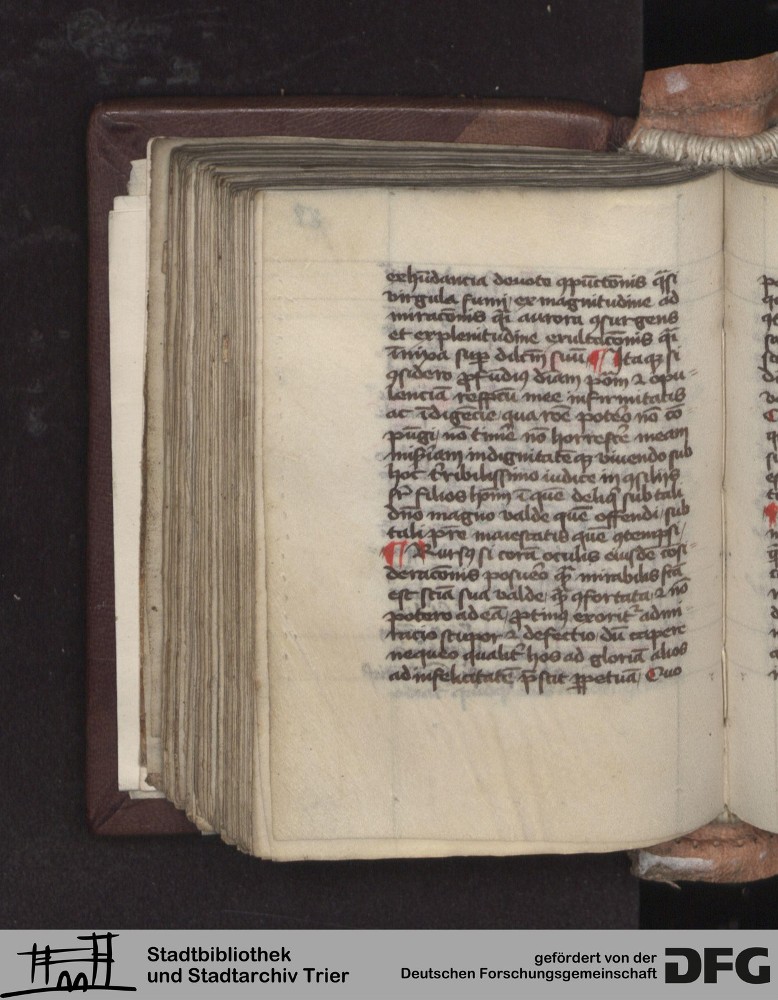 exhūdancia deuote ɔpūctōnis q̄si
virgula fumi / ex magnitudine ad
miracōnis q̄i aurora ɔsurgens
et ex plenitudine exultacōnis q̄i
īnixa sup dilcm̄ suū ¶ Itaqꝫ si
ɔsidero ꝓfūdiꝰ diuīam potn̄ ⁊ opu-
lenciā respctū mee infirmitatis
ac īdigēcie / qua rōe potero nō cō
pūgi / nō timē nō horrescē meam
miseriam indignitatēqꝫ viuendo sub
hoc t̄ribilissimo iudice in ɔsiliis
sr̄ filios hoīm ī que deliq̄ sub tali
dn̄o magno valde quē offendi / sub
tali pr̄e maiestatis que ɔtempsi /
¶ Rursꝰ si corā oculis eiusdē cōsi
deracōnis posuero q̄ mirabilis scā
est sciā sua valde / q̄ ɔfortata / ⁊ nō
potero ad eā / ꝓtinꝰ exorit̄ admi-
racio stupor ⁊ defectio / dū capere
nequeo qualit̄ hos ad gloriā alios
ad infelicitatē p̄scit ꝑpetuā / Quo
Stadtbibliothek
und Stadtarchiv Trier
gefördert von der
Deutschen Forschungsgemeinschaft
DFG